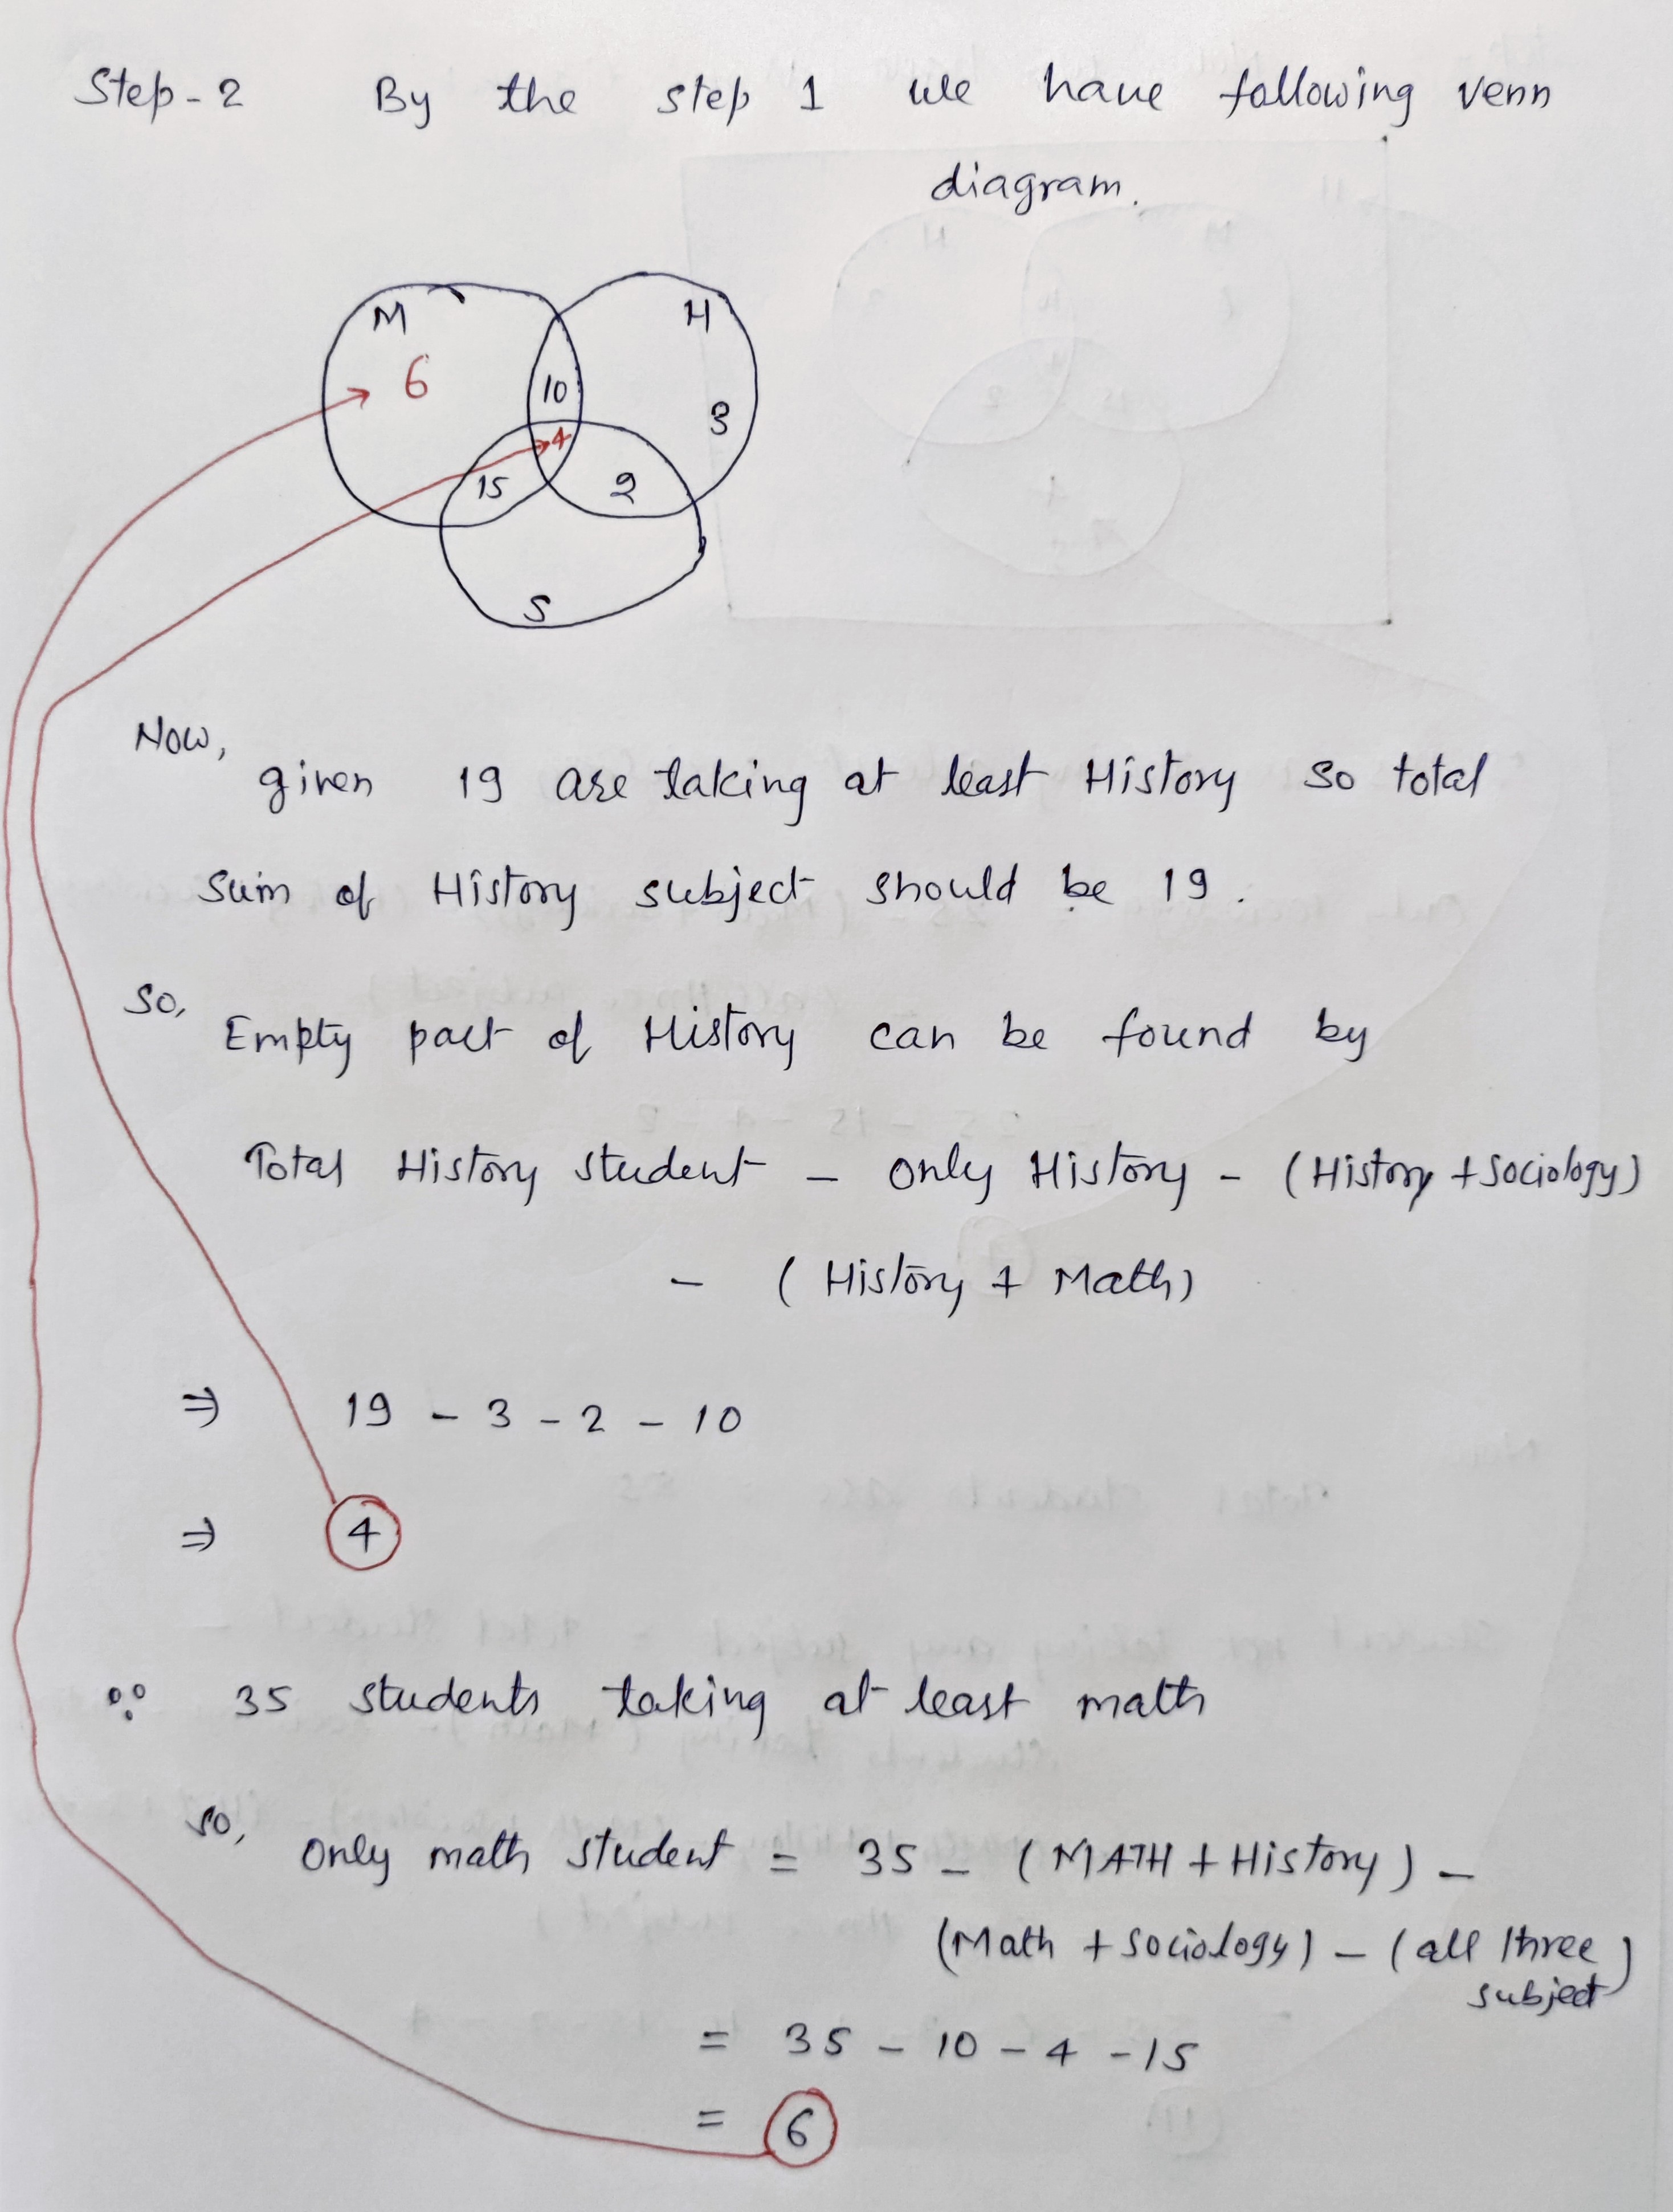 Step-2 By the step 1 we have following venn
diagram.
M H
6 10 3
4
15 2
S
Now,
given 19 are taking at least History so total
Sum of History subject should be 19.
So,
Empty part of History can be found by
Total History student - only History - (History + Sociology)
- (History + Math)
⇒ 19 - 3 - 2 - 10
⇒ 4
∵ 35 students taking at least math
so,
Only math student = 35 - (MATH + History) -
(Math + Sociology) - (all three
subject)
= 35 - 10 - 4 - 15
= 6